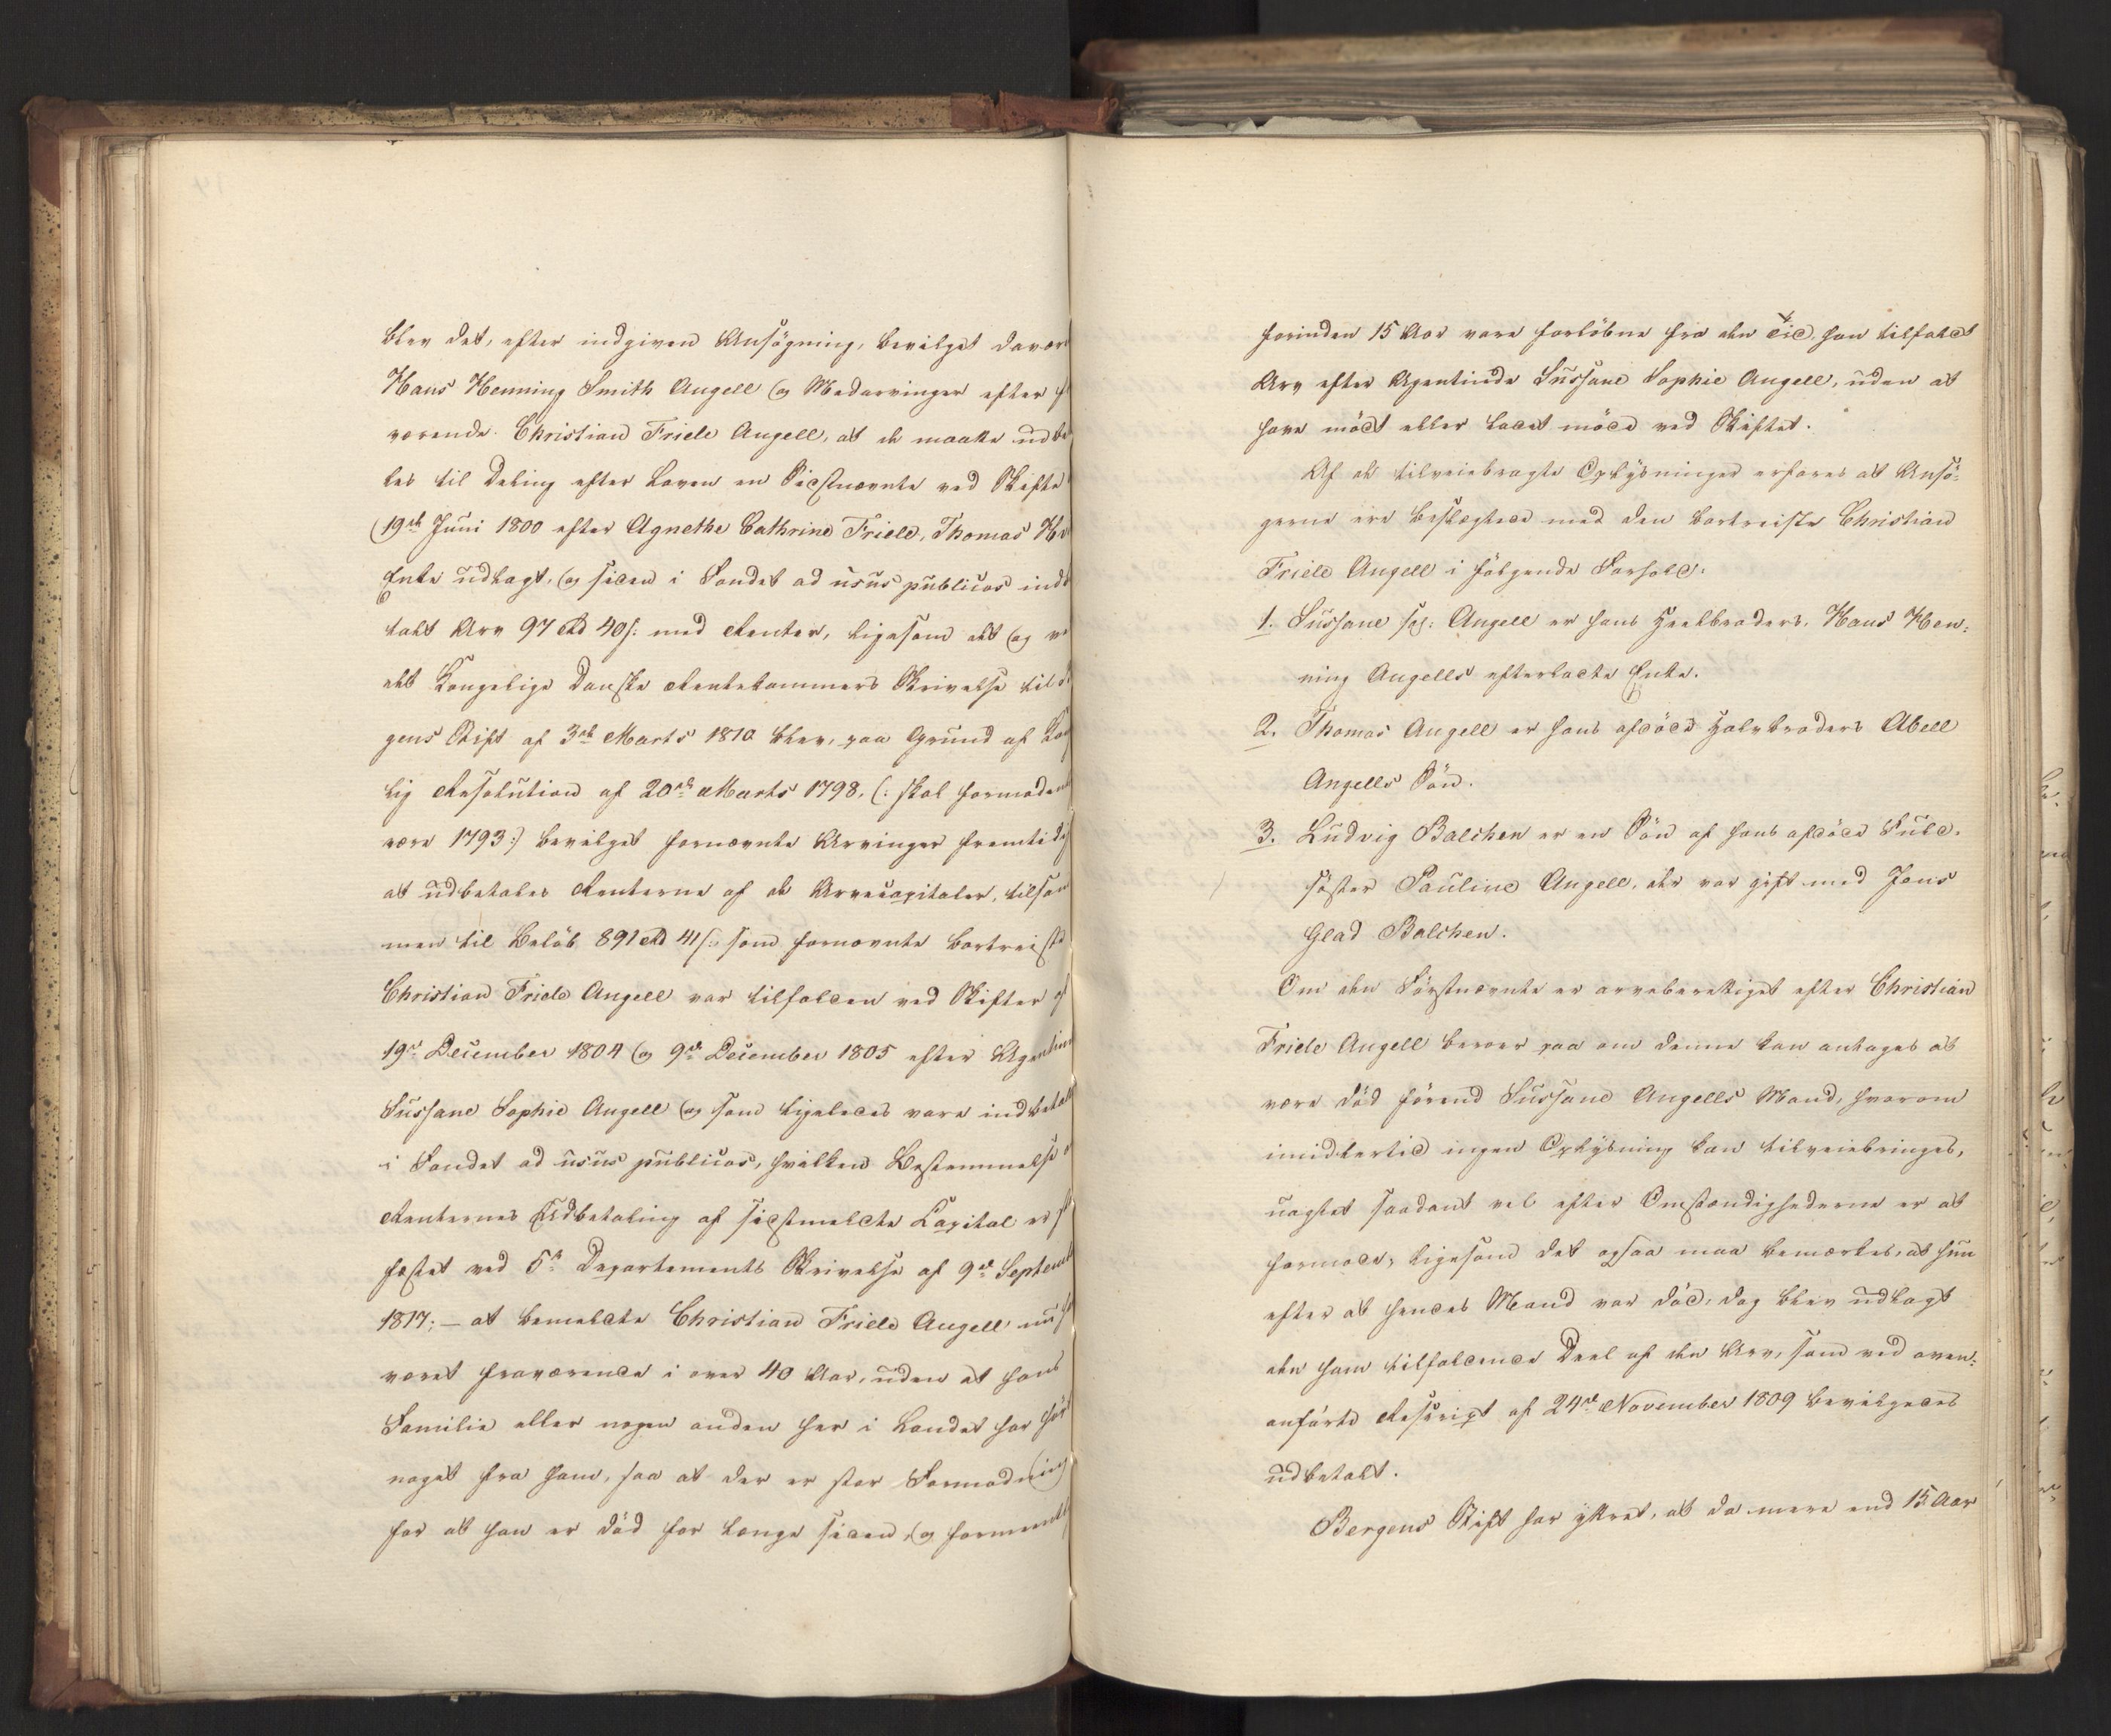 blev det, efter indgiven Ansögning, bevilget davær
Hans Henning Smith Angell og Medarvinger efter f
værende Christian Friele Angell, at de maatte udbe
les til Deling efter Loven en Sidstnævnte ved Skifte
19de Juni 1800 efter Agnethe Cathrine Friele, Thomas
Enke udlagt, og siden i Fondet ad usus publicos ind
talt Arv 97 Rd 40 s: med Renter, ligesom det og v
det Kongelige Danske Rentekammers Skrivelse til
gens Stift af 3de Marts 1810 blev, paa Grund af Kon
lig Resolution af 20de Marts 1798, (: skal formodent
være 1793:) bevilget fornævnte Arvinger fremtidig
at udbetales Renterne af de Arvecapitaler, tilsam
men til Beløb 891 Rd 41 s: som fornævnte bortreiste
Christian Friele Angell var tilfalden ved Skifter af
19de December 1804 og 9de December 1805 efter Agentind
Sussane Sophie Angell og som ligeledes vare indbetalt
i Fondet ad usus publicos, hvilken Bestemmelse
Renternes Udbetaling af sidstmeldte Capital er
fæstet ved 5te Departements Skrivelse af 9de Septemb
1817; – at bemeldte Christian Friele Angell nu
været fraværende i over 40 Aar, uden at hans
Familie eller nogen anden her i Landet har hørt
noget fra ham, saa at der er stor Formodning
for at han er död for længe siden, og formeentl
forinden 15 Aar vare forløbne fra den Tid, han tilfaldt
Arv efter Agentinde Sussane Sophie Angell, uden at
have mödt eller ladet möde ved Skiftet.
Af de tilveiebragte Oplysninger erfares at Ansö-
gerne ere beslægtede med den bortreiste Christian
Friele Angell i følgende Forhold:
1. Sussane sal: Angell er hans Heelbroders, Hans Hen-
ning Angells efterladte Enke.
2. Thomas Angell er hans afdöde Halvbroders Abell
Angells Sön.
3. Ludvig Balchen er en Sön af hans afdöde Fuld-
søster Pauline Angell, der var gift med Jens
Glad Balchen.
Om den Förstnævnte er arveberettiget efter Christian
Friele Angell beroer paa om denne kan antages at
være död förend Sussane Angells Mand, hvorom
imidlertid ingen Oplysning kan tilveiebringes,
uagtet saadant vel efter Omstændighederne er at
formode, ligesom det ogsaa maa bemærkes, at hun
efter at hendes Mand var död, dog blev udlagt
den ham tilfaldende Deel af den Arv, som ved oven-
anførte Rescript af 24de November 1809 bevilgedes
udbetalt.
Bergens Stift har yttret, at da mere end 15 Aar